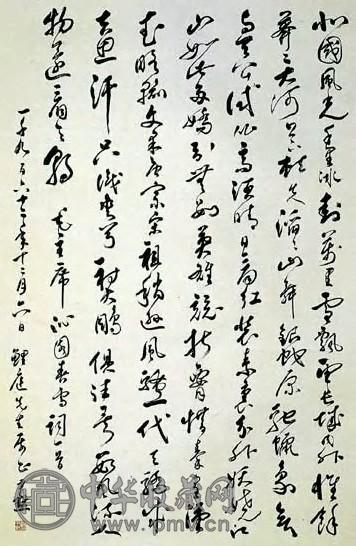 北國風光千里冰封萬里雪飄望長城內外惟餘
莽々大河上下頓失滔々山舞銀蛇原馳蠟象欲
與天公試比高須晴日看紅裝素裹分外妖嬈江
山如此多嬌引無數英雄競折腰惜秦皇漢
武略輸文采唐宗宋祖稍遜風騷一代天驕成
吉思汗只識彎弓射大鵰俱往矣數風流人
物還看今朝 毛主席沁園春雪詞一首
一千九百六十二年十二月六日 鯉庭先生屬正
中华收藏网
www.pmv.cn